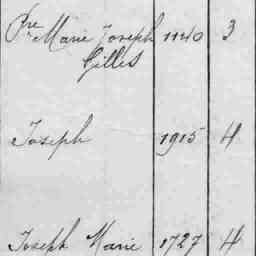 Pre Marie Joseph 1140 3
Gilles
Joseph 1915 4
Joseph Marie 1727 4